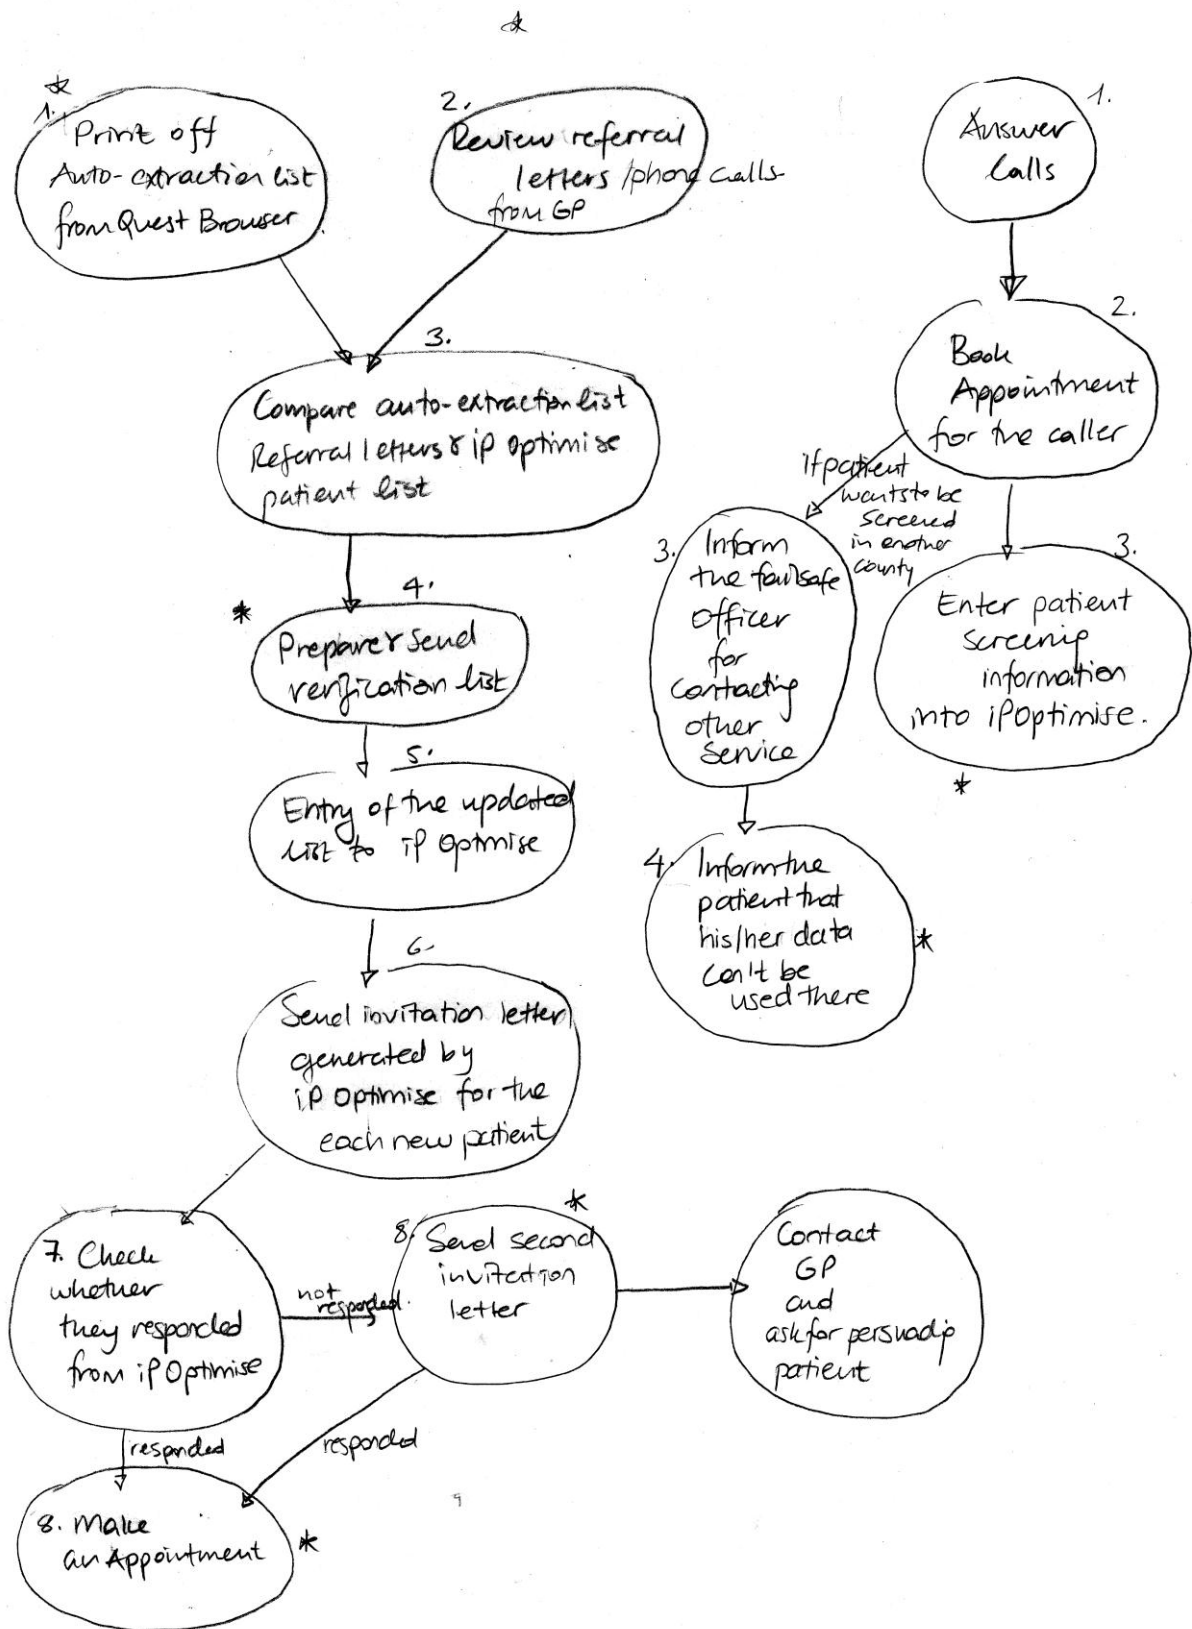 *
*
1.
Print off
Auto-extraction list
from Quest Browser
2.
Review referral
letters /phone calls
from GP
3.
Compare auto-extraction list
Referral letters & iP Optimise
patient list
*
4.
Prepare & send
verification list
5.
Entry of the updated
list to iP Optmise
6.
Send invitation letter
generated by
iP Optimise for the
each new patient
7. Check
whether
they responded
from iP Optimise
not
responded.
*
8. Send second
invitation
letter
Contact
GP
and
ask for persuadig
patient
responded
responded
8. Make
an Appointment
*
1.
Answer
Calls
2.
Book
Appointment
for the caller
if patient
wants to be
screened
in another
county
3.
Inform
the failsafe
Officer
for
contacting
other
Service
3.
Enter patient
screenig
information
into iPOptimise.
*
4.
Inform the
patient that
his/her data
can't be
used there
*